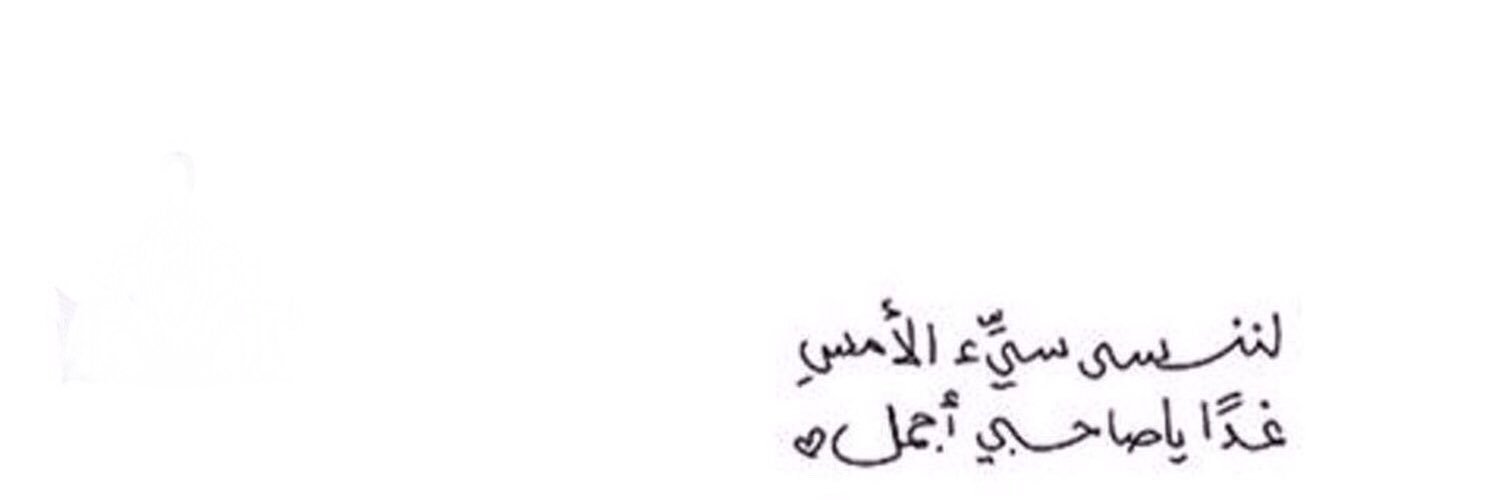 لننسى سيِّء الأمسِ
غدًا ياصاحبي أجمل♡